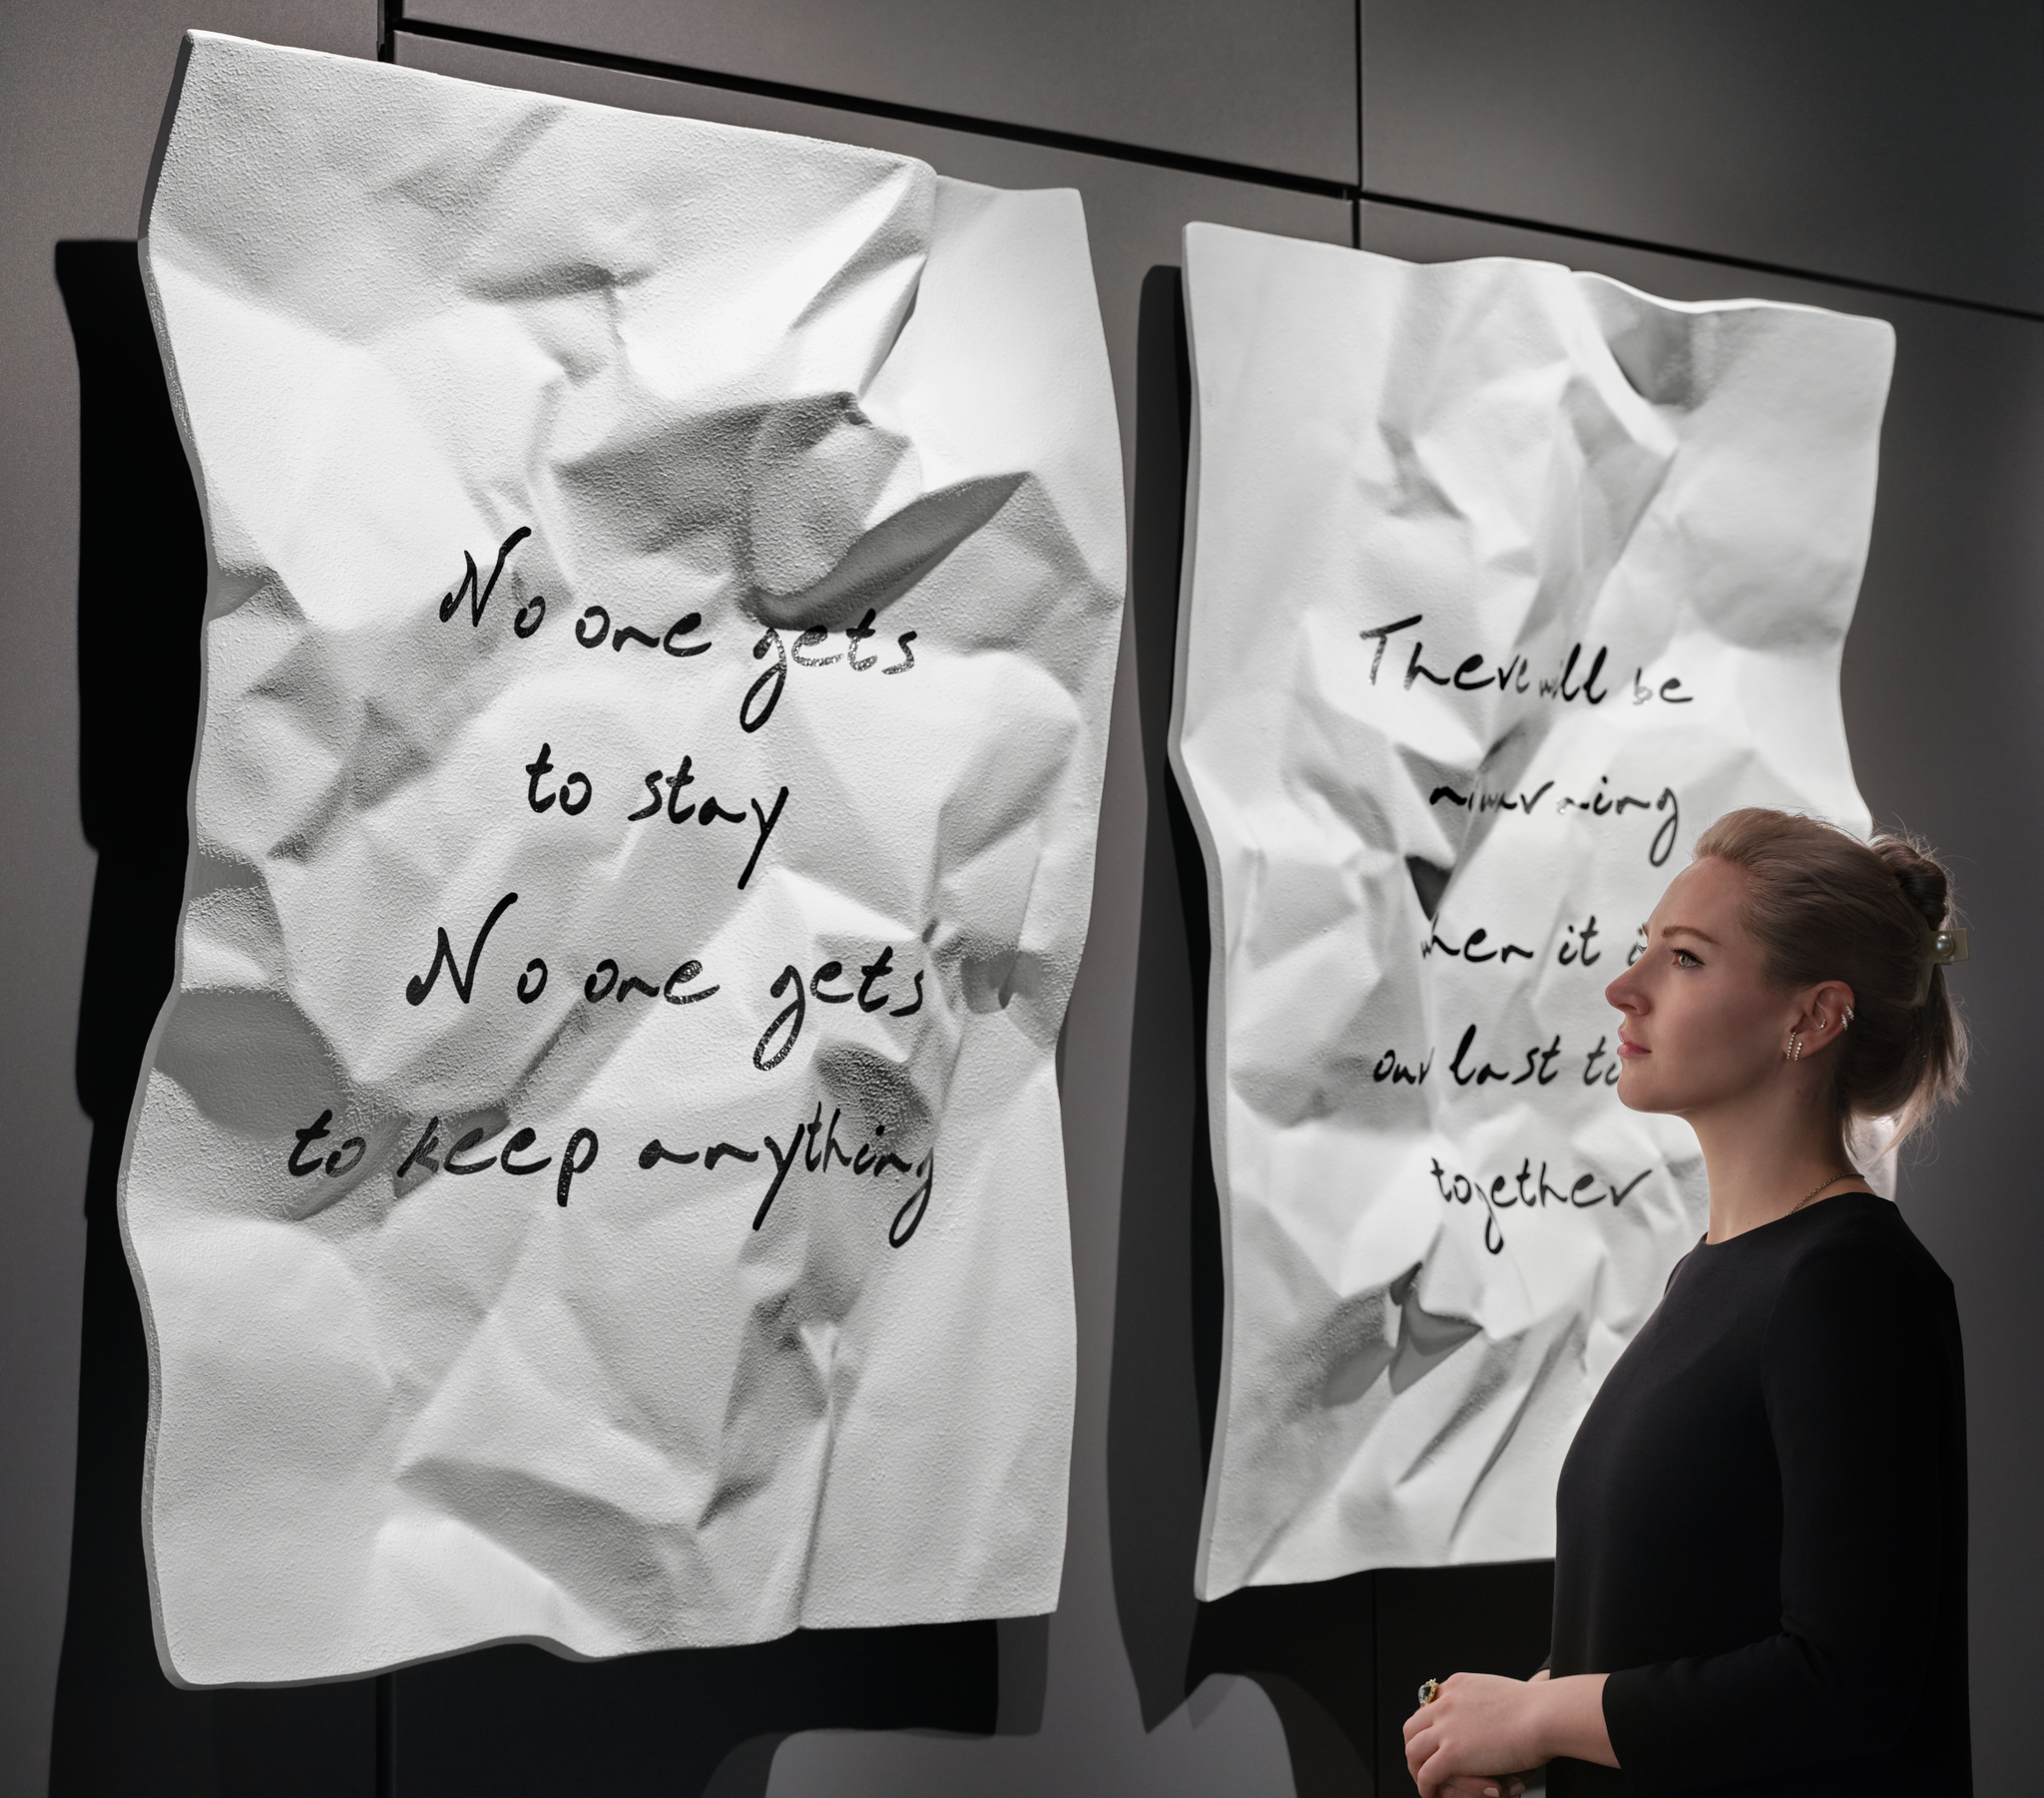 No one gets
to stay
No one gets
to keep anything
There will be
warning
when it
our last
together